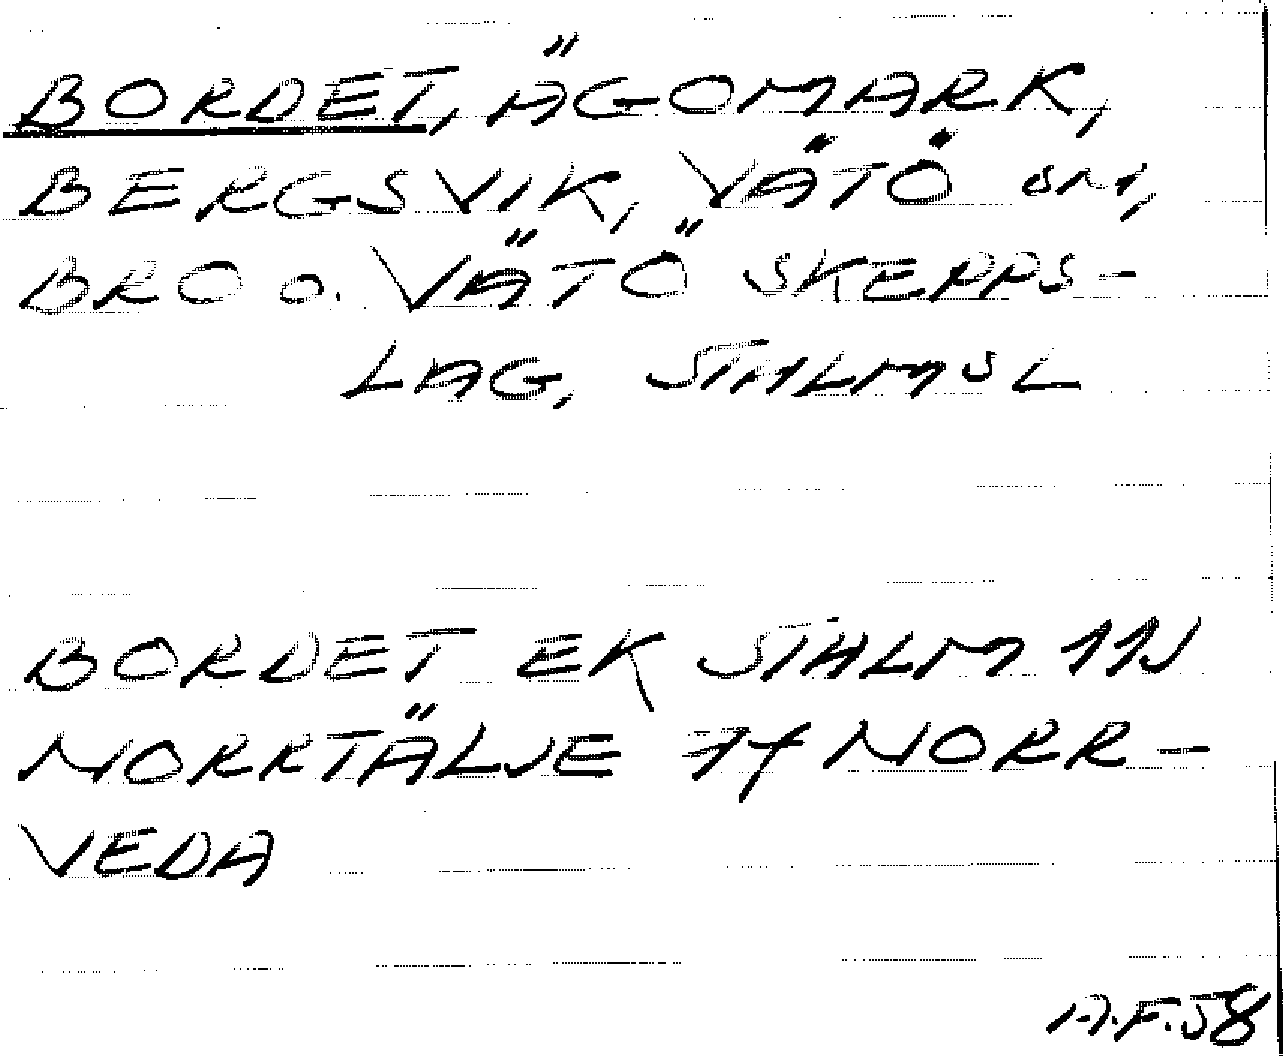 BORDET, ÄGOMARK,
BERGSVIK, VÄTÖ SN,
BRO O. VÄTÖ SKEPPS-
LAG, STHLMSL
BORDET EK STHLM 11J
NORRTÄLJE 7f NORR-
VEDA
A.F. 58